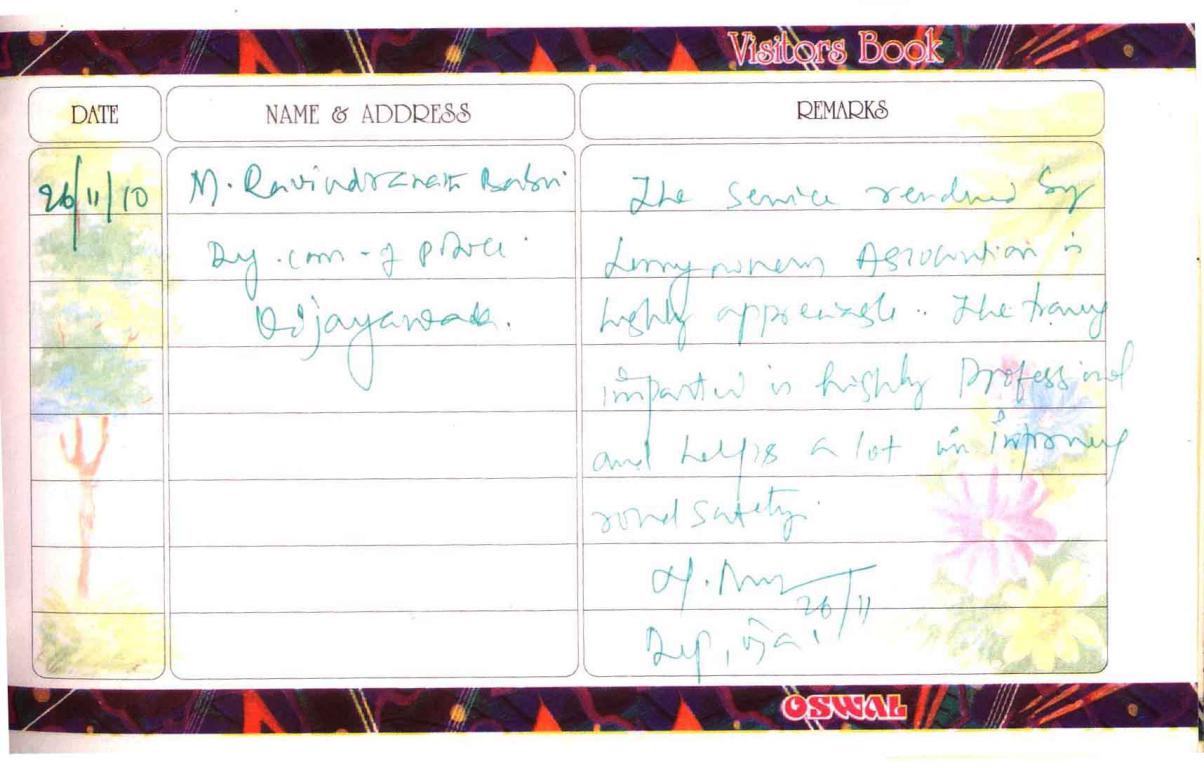 Visitors Book
DATE NAME & ADDRESS REMARKS
26/11/10 M. Ravindranath Babu. The service rendered by
Dy. com - of police. Lorry owners Association is
Vijayawada. highly appreciable. The training
imparted is highly Professional
and helps a lot in improving
road safety.
26/11
OSWAL